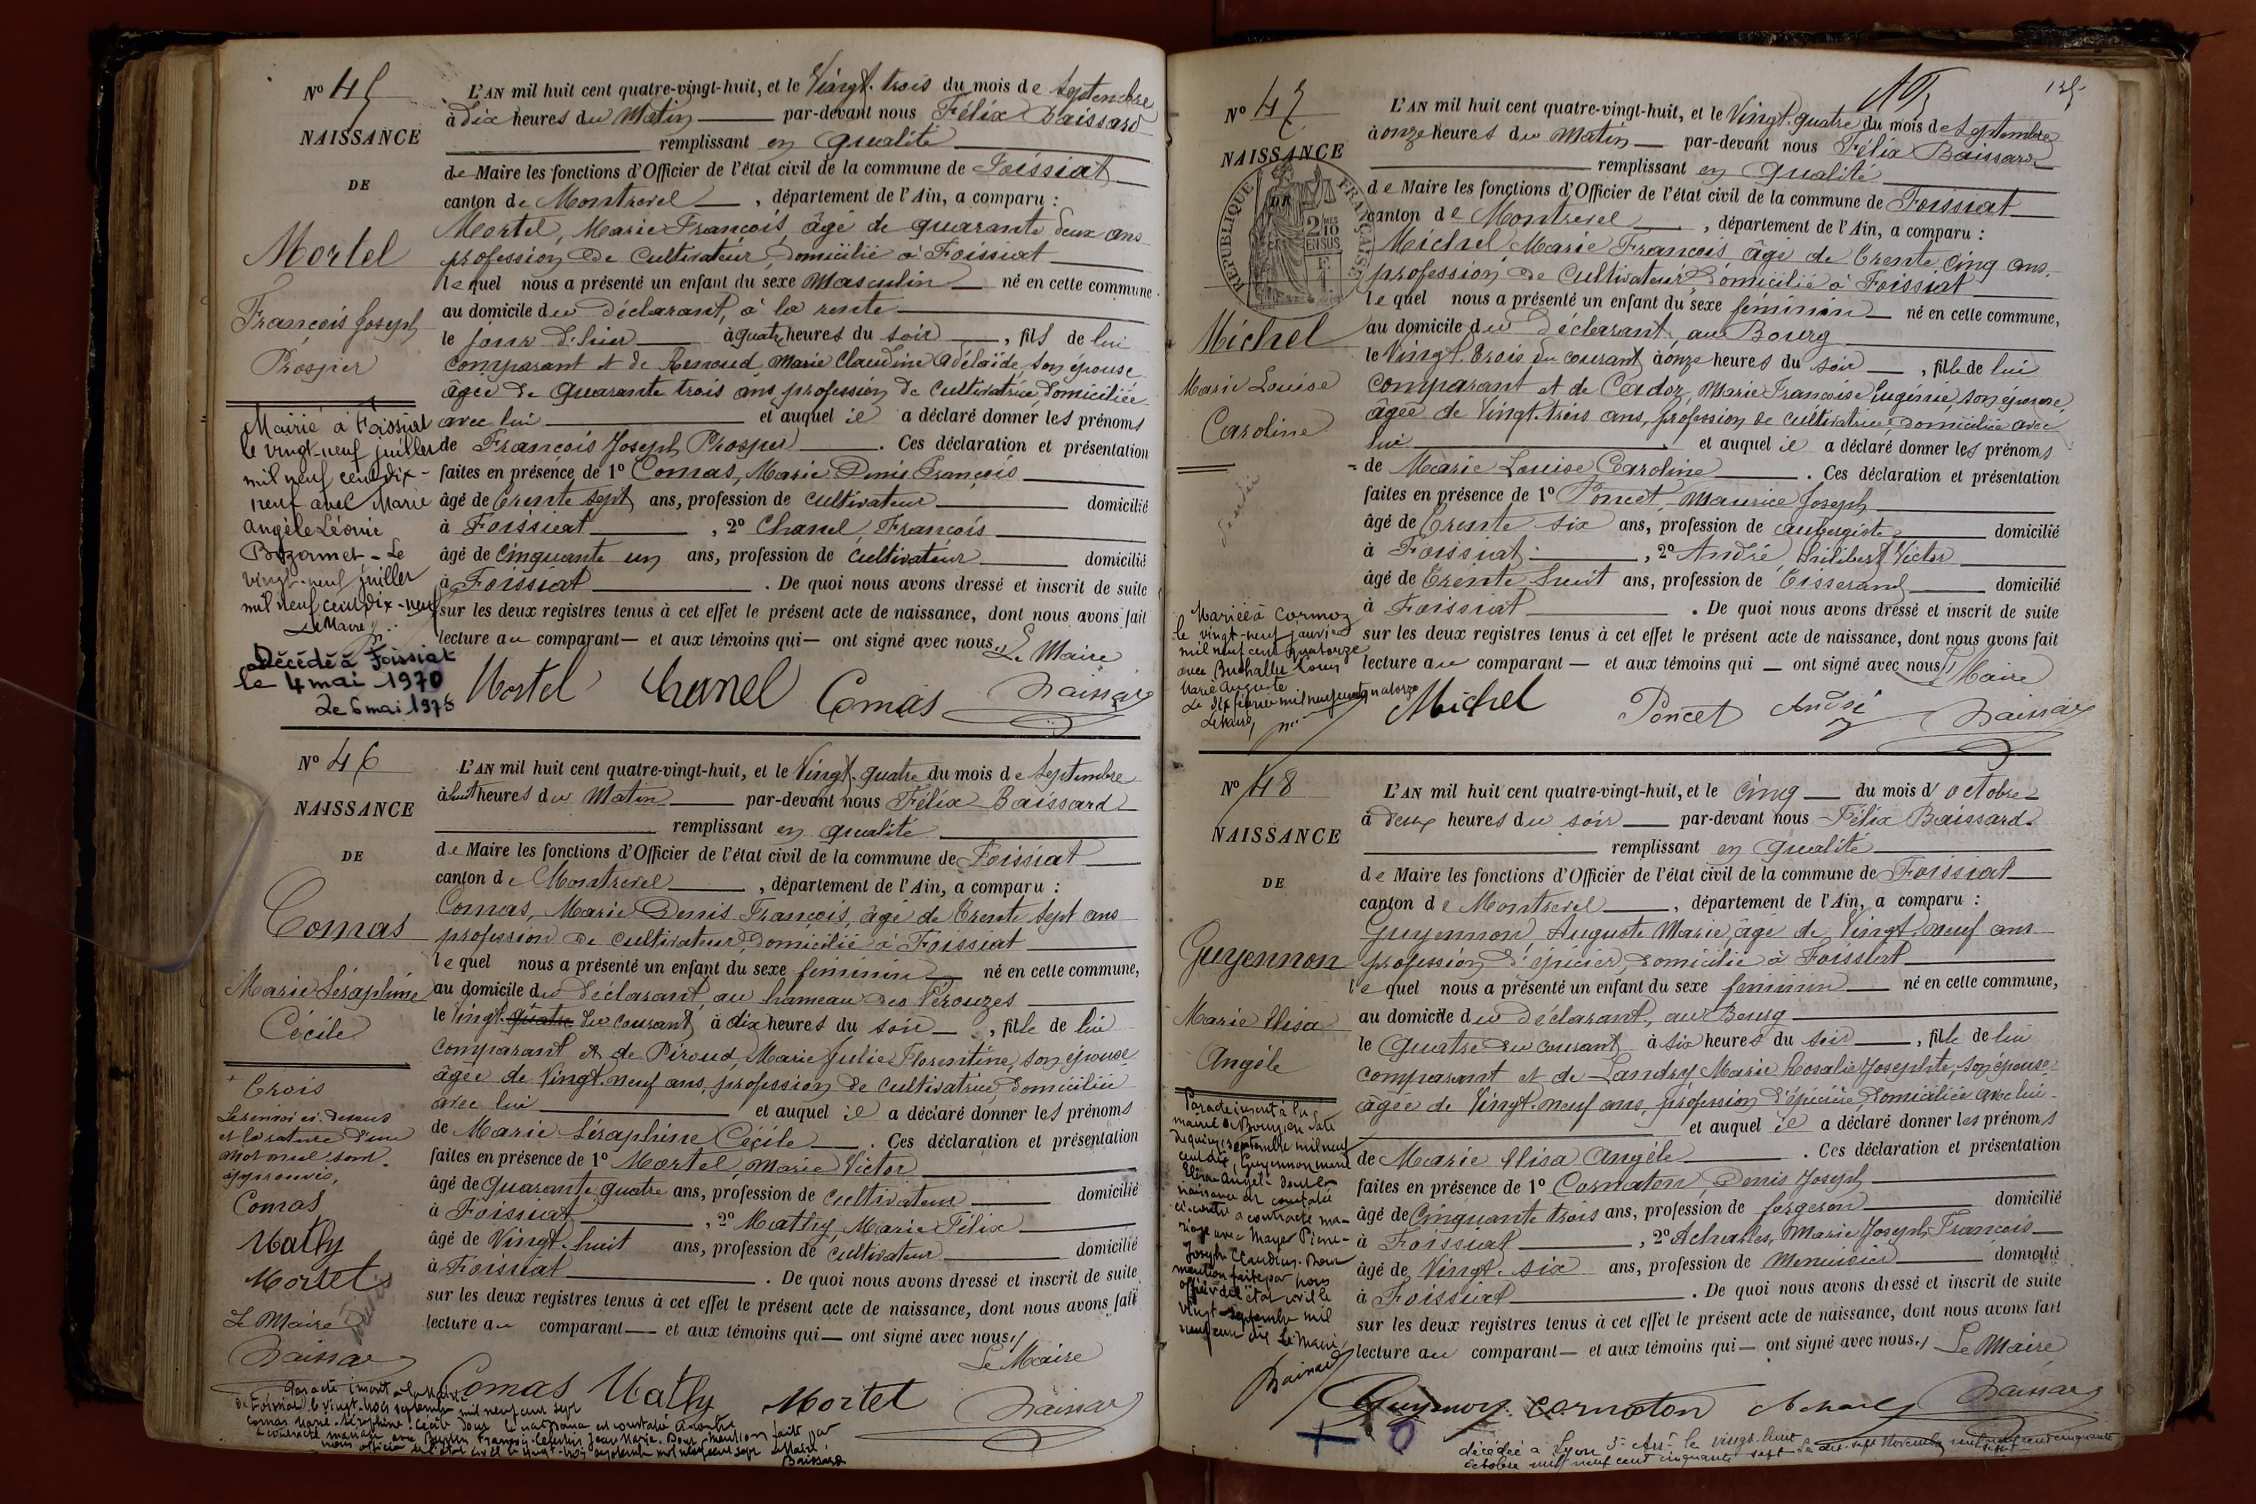 N° 45
NAISSANCE
DE
Mortel
François Joseph
Prosper
Marié à Foissiat
le vingt-neuf juillet
mil neuf cent dix-
neuf avec Marie
Angèle Léonie
Bozonnet - Le
vingt-neuf juillet
mil neuf cent dix-neuf
Le Maire
Décédé à Foissiat
le 4 mai 1970
Le 6 mai 1970
L'AN mil huit cent quatre-vingt-huit, et le Vingt-trois du mois de Septembre
à dix heures du Matin par-devant nous Félix Baissard
remplissant en qualité
de Maire les fonctions d'Officier de l'état civil de la commune de Foissiat
canton de Montrevel, département de l'Ain, a comparu :
Mortel, Marie François, âgé de quarante deux ans
profession de cultivateur, domicilié à Foissiat
lequel nous a présenté un enfant du sexe Masculin né en cette commune
au domicile du déclarant, à la
le jour d'hier à quatre heures du soir, fils de lui
comparant et de Renoud, Marie Claudine Adélaïde, son épouse
âgée de quarante trois ans, profession de cultivatrice, domiciliée
avec lui et auquel il a déclaré donner les prénoms
de François Joseph Prosper. Ces déclaration et présentation
faites en présence de 1° Comas, Marie Denis François
âgé de trente sept ans, profession de cultivateur domicilié
à Foissiat, 2° Chanel, François
âgé de cinquante un ans, profession de cultivateur domicilié
à Foissiat. De quoi nous avons dressé et inscrit de suite
sur les deux registres tenus à cet effet le présent acte de naissance, dont nous avons fait
lecture au comparant — et aux témoins qui — ont signé avec nous
Le Maire
Mortel Chanel Comas Baissard
N° 46
NAISSANCE
DE
Comas
Marie Séraphine
Cécile
Trois
Le renvoi ci-dessus
et la rature d'un
mot nul sont
approuvés,
Comas
Mathy
Mortel
Le Maire
Baissard
L'AN mil huit cent quatre-vingt-huit, et le Vingt-quatre du mois de Septembre
à huit heures du Matin par-devant nous Félix Baissard
remplissant en qualité
de Maire les fonctions d'Officier de l'état civil de la commune de Foissiat
canton de Montrevel, département de l'Ain, a comparu :
Comas, Marie Denis François, âgé de trente sept ans
profession de cultivateur, domicilié à Foissiat
lequel nous a présenté un enfant du sexe féminin né en cette commune,
au domicile du déclarant, au hameau des Pérouzes
le Vingt-quatre du courant, à dix heures du soir, fille de lui
comparant et de Piroud, Marie Julie Florentine, son épouse
âgée de Vingt-neuf ans, profession de cultivatrice, domiciliée
avec lui et auquel il a déclaré donner les prénoms
de Marie Séraphine Cécile. Ces déclaration et présentation
faites en présence de 1° Mortel, Marie Victor
âgé de quarante quatre ans, profession de cultivateur domicilié
à Foissiat, 2° Mathy, Marie Félix
âgé de Vingt-huit ans, profession de cultivateur domicilié
à Foissiat. De quoi nous avons dressé et inscrit de suite
sur les deux registres tenus à cet effet le présent acte de naissance, dont nous avons fait
lecture au comparant — et aux témoins qui — ont signé avec nous
Le Maire
Comas Mathy Mortel Baissard
Par acte inscrit à la Mairie
de Foissiat le vingt-trois septembre mil neuf cent sept
Comas Marie Séraphine Cécile dont la naissance est constatée ci-contre
a contracté mariage avec François Célestin Jean Marie. Dont mention faite par
nous officier de l'état civil le vingt-trois septembre mil neuf cent sept Le Maire,
Baissard
125
N° 47
NAISSANCE
DE
RÉPUBLIQUE FRANÇAISE
2/10 EN SUS
Michel
Marie Louise
Caroline
Mariée à Cormoz
le vingt-neuf janvier
mil neuf cent quatorze
avec Buchallet Louis
Marie Auguste
Le dix février mil neuf cent quatorze
Le Maire,
L'AN mil huit cent quatre-vingt-huit, et le Vingt-quatre du mois de Septembre
à onze heures du Matin par-devant nous Félix Baissard
remplissant en qualité
de Maire les fonctions d'Officier de l'état civil de la commune de Foissiat
canton de Montrevel, département de l'Ain, a comparu :
Michel, Marie François, âgé de trente cinq ans
profession de cultivateur, domicilié à Foissiat
lequel nous a présenté un enfant du sexe féminin né en cette commune,
au domicile du déclarant, au Bourg
le Vingt-trois du courant, à onze heures du soir, fille de lui
comparant et de Cordoz, Marie Françoise Eugénie, son épouse,
âgée de Vingt-trois ans, profession de cultivatrice, domiciliée avec
lui et auquel il a déclaré donner les prénoms
de Marie Louise Caroline. Ces déclaration et présentation
faites en présence de 1° Poncet, Maurice Joseph
âgé de trente six ans, profession de aubergiste domicilié
à Foissiat, 2° André, Philibert Victor
âgé de trente huit ans, profession de tisserand domicilié
à Foissiat. De quoi nous avons dressé et inscrit de suite
sur les deux registres tenus à cet effet le présent acte de naissance, dont nous avons fait
lecture au comparant — et aux témoins qui — ont signé avec nous
Le Maire
Michel Poncet André Baissard
N° 48
NAISSANCE
DE
Guyennon
Marie Elisa
Angèle
Par acte inscrit à la
mairie de Bourg en date
du quinze septembre mil neuf
cent dix, Guyennon Marie
Elisa Angèle dont la
naissance est constatée
ci-contre a contracté ma-
riage avec Mayer Pierre-
Joseph Claudius. Dont
mention faite par nous
officier de l'état civil le
vingt septembre mil
neuf cent dix Le Maire,
Baissard
L'AN mil huit cent quatre-vingt-huit, et le cinq du mois d'octobre
à deux heures du soir par-devant nous Félix Baissard
remplissant en qualité
de Maire les fonctions d'Officier de l'état civil de la commune de Foissiat
canton de Montrevel, département de l'Ain, a comparu :
Guyennon, Auguste Marie, âgé de Vingt-neuf ans
profession d'épicier, domicilié à Foissiat
lequel nous a présenté un enfant du sexe féminin né en cette commune,
au domicile du déclarant, au Bourg
le quatre du courant à six heures du soir, fille de lui
comparant et de Landry Marie Rosalie Josephte, son épouse
âgée de Vingt-neuf ans, profession d'épicière, domiciliée avec lui
et auquel il a déclaré donner les prénoms
de Marie Elisa Angèle. Ces déclaration et présentation
faites en présence de 1° Cornaton, Denis Joseph
âgé de cinquante trois ans, profession de forgeron domicilié
à Foissiat, 2° Acharles, Marie Joseph François
âgé de Vingt-six ans, profession de Menuisier domicilié
à Foissiat. De quoi nous avons dressé et inscrit de suite
sur les deux registres tenus à cet effet le présent acte de naissance, dont nous avons fait
lecture au comparant — et aux témoins qui — ont signé avec nous
Le Maire
Guyennon Cornaton Acharles Baissard
décédée à Lyon 5e Arrt le vingt-huit
octobre mil neuf cent cinquante sept Le dix-sept Novembre mil neuf cent cinquante
sept